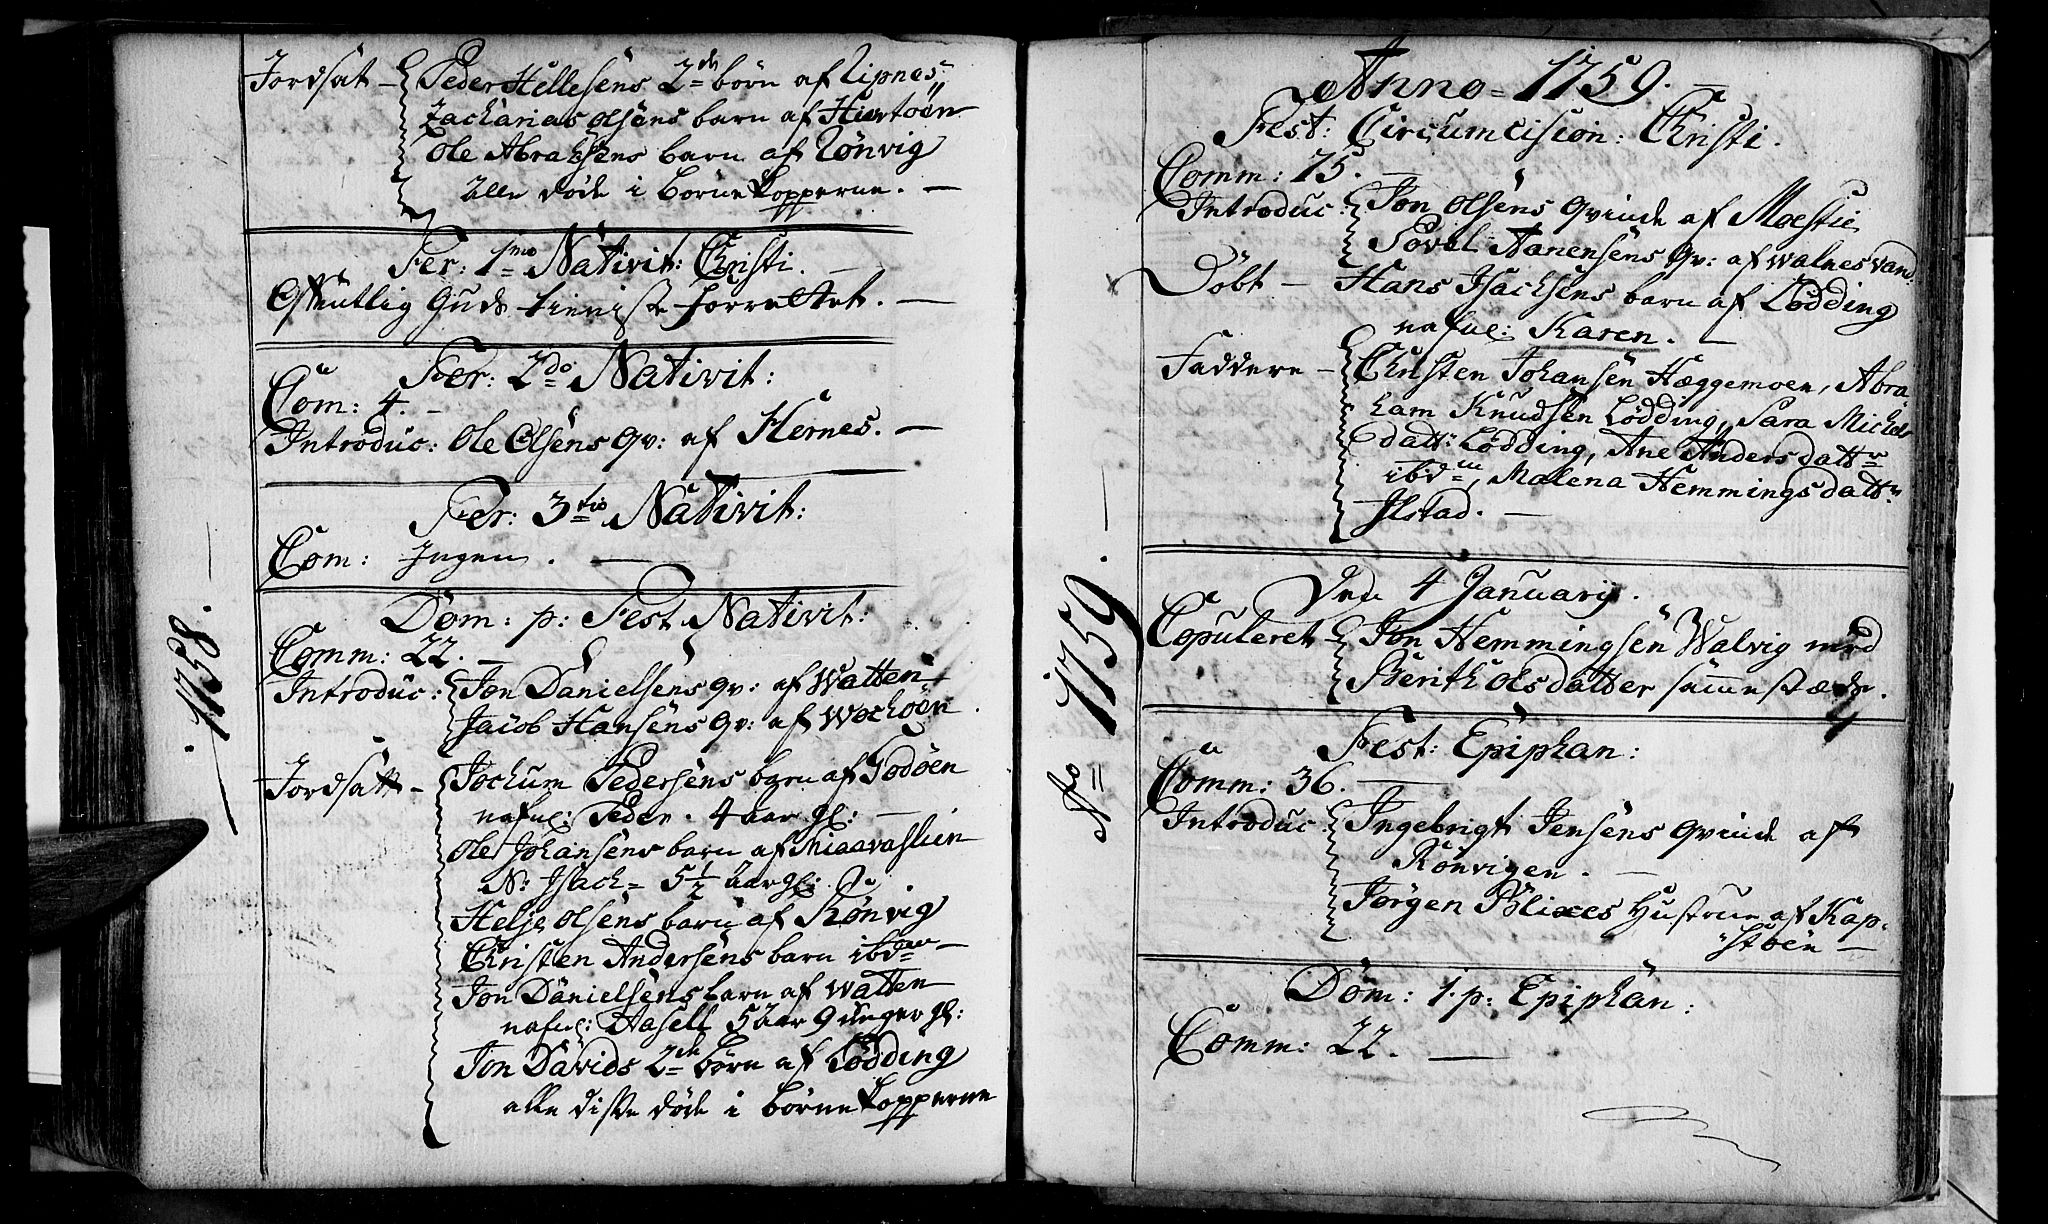 1758.
Jordsat – Peder Hellesens 2de børn af Lipnes
Zacharias Olsens barn af Hiertøen
Ole Abrahsens barn af Rønvig
alle døde i Børnekopperne. –
Fer: 1mo Nativit: Christi. –
Offentlig Guds tieniste forrettet. –
Fer: 2do Nativit:
Com: 4. –
Introduc: Ole Olsens qv: af Hernes. –
Fer: 3tio Nativit:
Com: Ingen. –
Dom: p: Fest Nativit:
Comm: 22. –
Introduc: Jon Danielsens qv: af Watten
Jacob Hansens qv: af Wochøen
Jordsatt – Jochum Pedersens barn af Godøen
nafnl: Peder. 4 aar gl: –
Ole Johansens barn af Misavashien
N: Isach = 5 1/2 aar gl:
Helje Olsens barn af Rønvig
Christen Andersens barn ibdm –
Jon Danielsens barn af Watten
nafnl: Hasell 5 aar 9 unger gl:
Jon Davids 2de børn af Lødding
alle disse døde i Børnekopperne
No 1759. –
Anno = 1759. –
Fest: Circumcision: Christi.
Comm: 15. –
Introduc: Jon Olsens qvinde af Moestie
Povel Aanensens qv: af Walnesvand:
Døbt – Hans Isachsens barn af Lødding
nafnl: Karen. –
Faddere – Christen Johansen Hæggemoen, Abra-
ham Knudsen Lødding, Sara Michels
datt: Lødding, Ane Andersdattr
ibdm, Malena Hemmingsdattr
Ilstad. –
Den 4 Januarij.
Copuleret – Jon Hemmingsen Walvig med
Berith Olsdatter sammestæds.
Fest: Epiphan:
Comm: 36. –
Introduc: Ingebrigt Jensens qvinde af
Rønvigen. –
Jørgen Blixes Hustrue af Kap-
støen –
Dom: 1. p: Epiphan:
Comm: 22. –